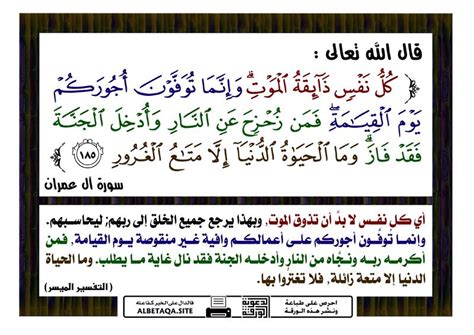 قال الله تعالى :
﴿ كُلُّ نَفۡسٖ ذَآئِقَةُ ٱلۡمَوۡتِۗ وَإِنَّمَا تُوَفَّوۡنَ أُجُورَكُمۡ
يَوۡمَ ٱلۡقِيَٰمَةِۖ فَمَن زُحۡزِحَ عَنِ ٱلنَّارِ وَأُدۡخِلَ ٱلۡجَنَّةَ
فَقَدۡ فَازَۗ وَمَا ٱلۡحَيَوٰةُ ٱلدُّنۡيَآ إِلَّا مَتَٰعُ ٱلۡغُرُورِ ١٨٥ ﴾
سورة آل عمران
أي كل نفس لا بدَّ أن تذوق الموت, وبهذا يرجع جميع الخلق إلى ربهم; ليحاسبهم.
وإنما توفَّون أجوركم على أعمالكم وافية غير منقوصة يوم القيامة, فمن
أكرمه ربه ونجَّاه من النار وأدخله الجنة فقد نال غاية ما يطلب. وما الحياة
الدنيا إلا متعة زائلة, فلا تغترُّوا بها.
(التفسير الميسر)
احرص على طباعة
ونشر هذه الورقة
فالدال على الخير كفاعله
ALBETAQA.SITE